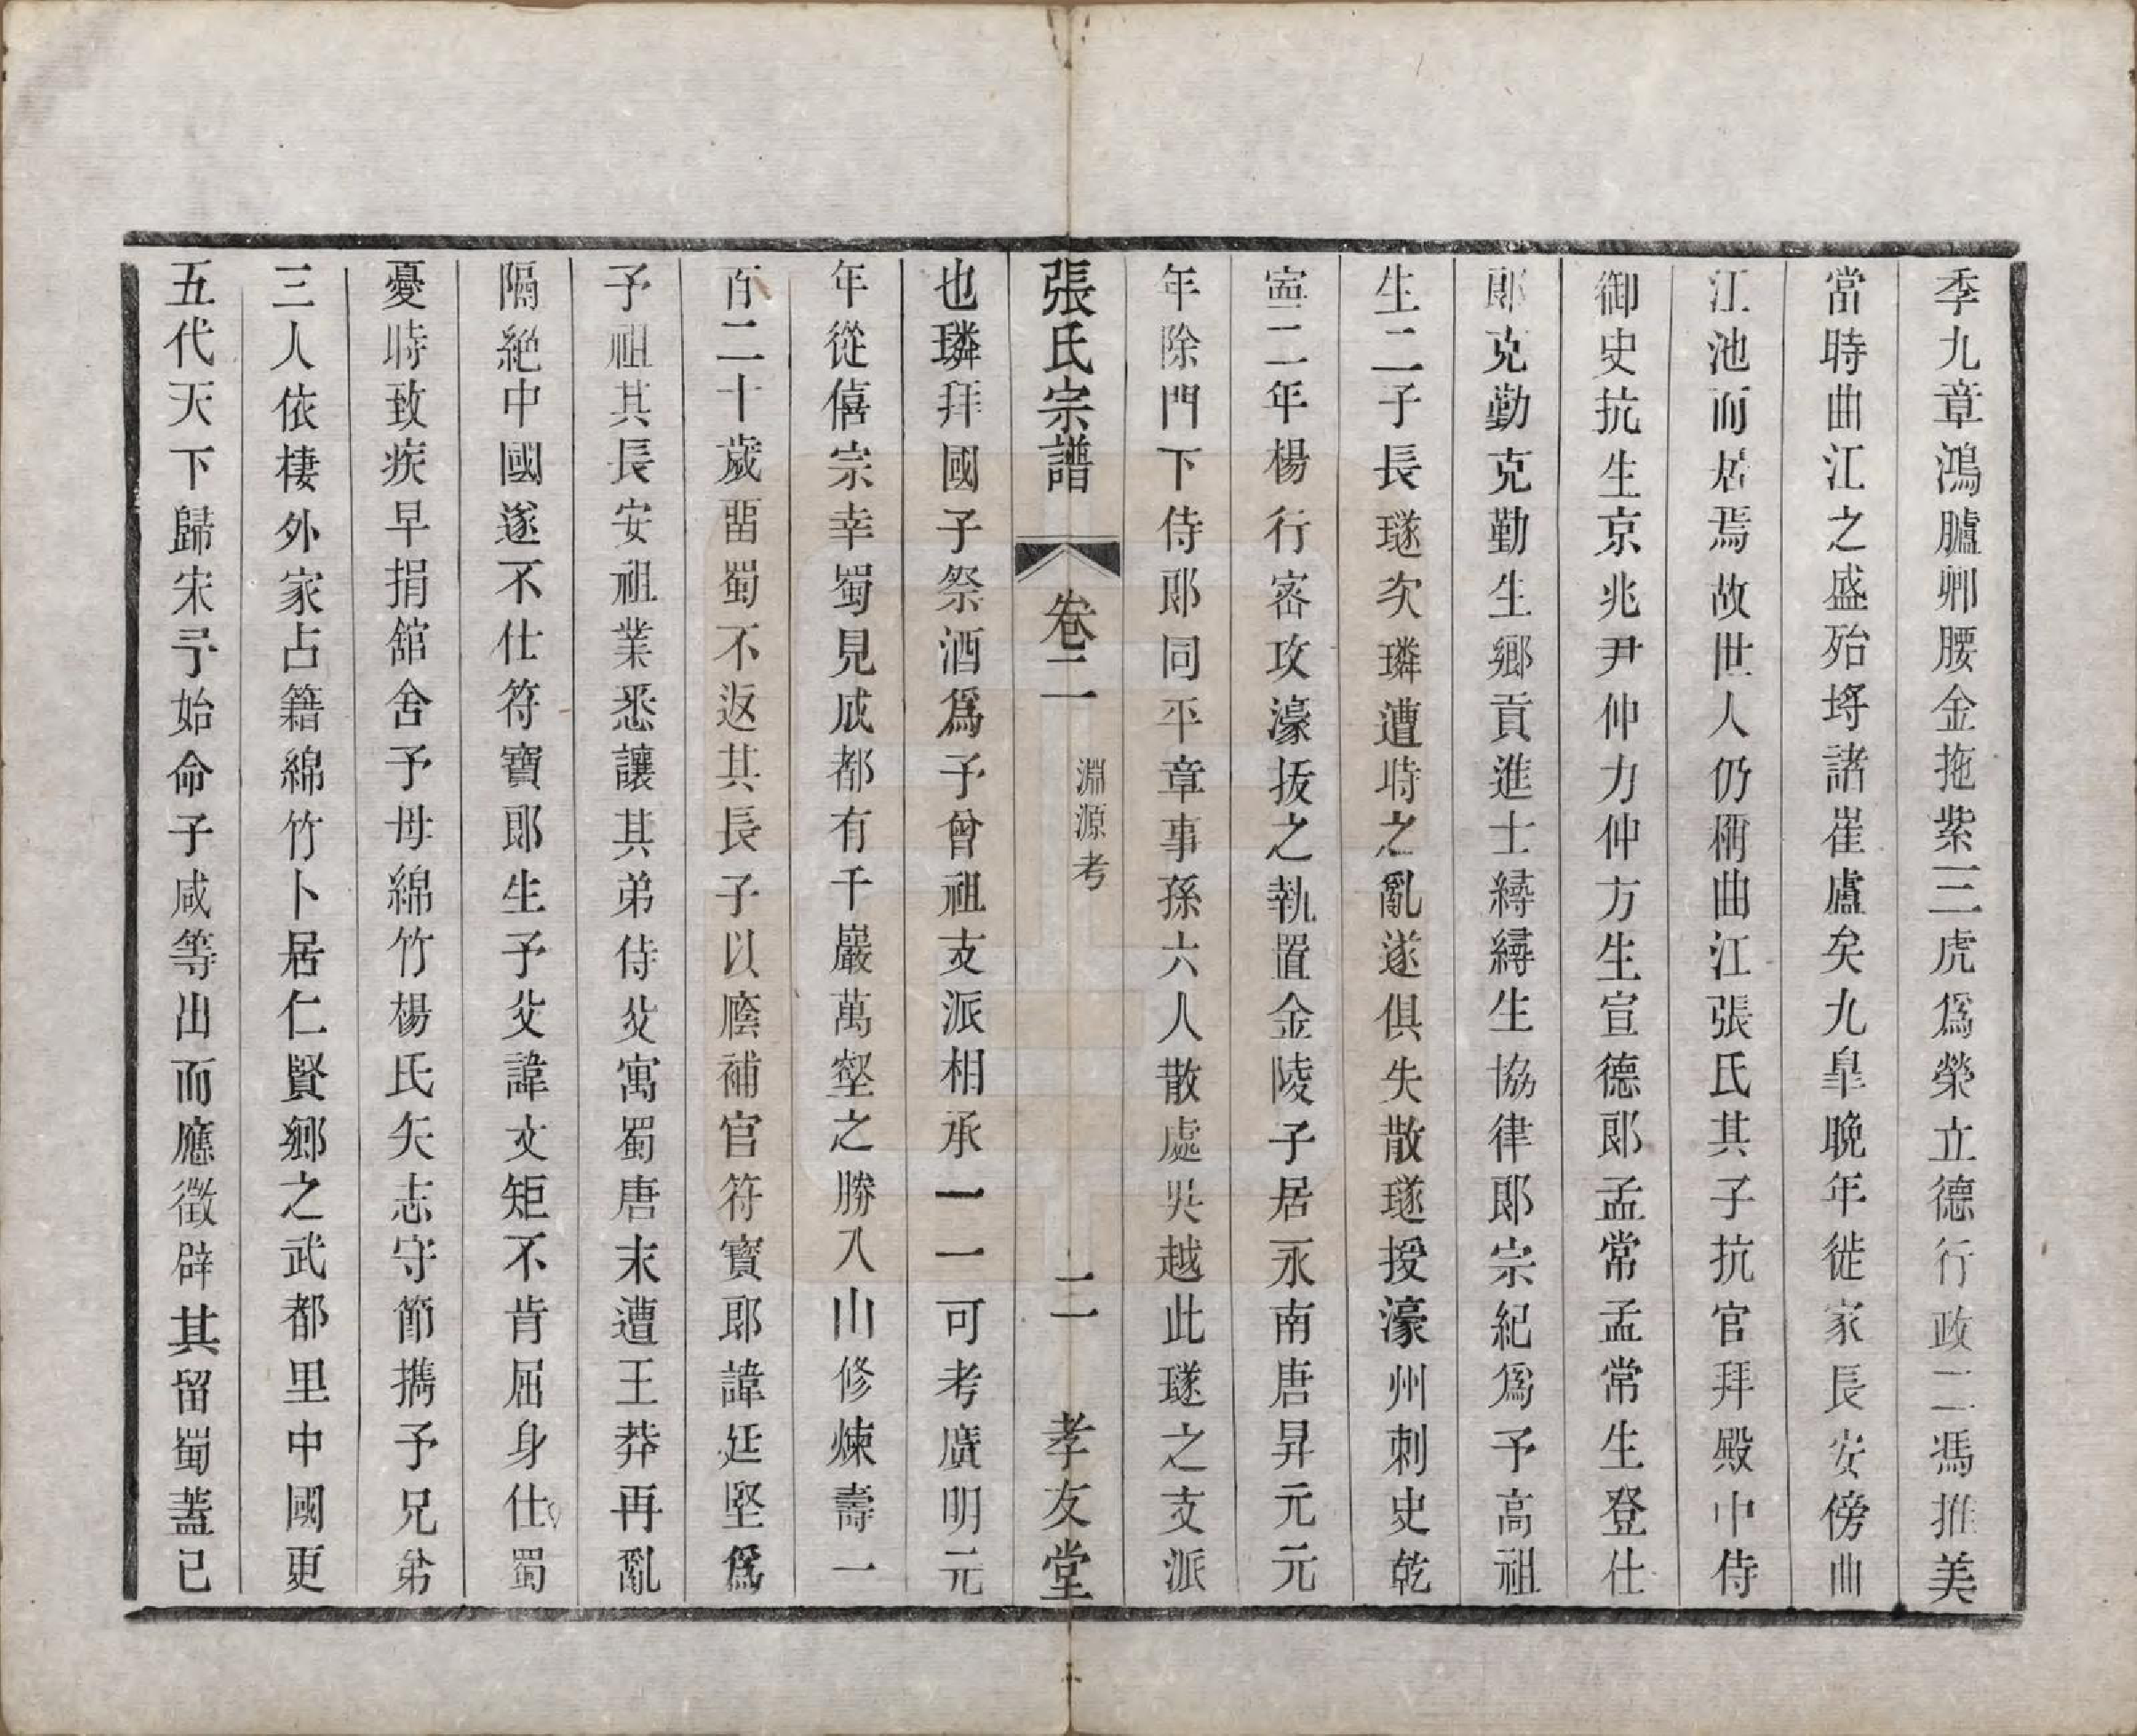 季九章鴻臚卿腰金拖紫三虎爲榮立德行政二馮推美
當時曲江之盛殆將諸崔盧矣九臯晩年徙家長安傍曲
江池而居焉故世人仍稱曲江張氏其子抗官拜殿中侍
御史抗生京兆尹仲力仲方生宣德郎孟常孟常生登仕
郎克勤克勤生鄉貢進士縳縳生協律郎宗紀爲予高祖
生二子長璲次璘遭時之亂遂俱失散璲授濠州刺史乾
寧二年楊行密攻濠拔之執置金陵子居永南唐昇元元
年除門下侍郎同平章事孫六人散處吳越此璲之支派
張氏宗譜 卷二 淵源考 二 孝友堂
也璘拜國子祭酒爲予曾祖支派相承一一可考廣明元
年從僖宗幸蜀見成都有千巖萬壑之勝入山修煉壽一
百二十歲畱蜀不返其長子以廕補官符寳郎諱廷堅爲
予祖其長安祖業悉讓其弟侍父寓蜀唐末遭王莽再亂
隔絶中國遂不仕符寶郎生予父諱文矩不肯屈身仕蜀
憂時致疾早捐舘舍予母綿竹楊氏矢志守節攜予兄弟
三人依棲外家占籍綿竹卜居仁賢鄉之武都里中國更
五代天下歸宋予始命子咸等出而應徵辟其留蜀蓋已